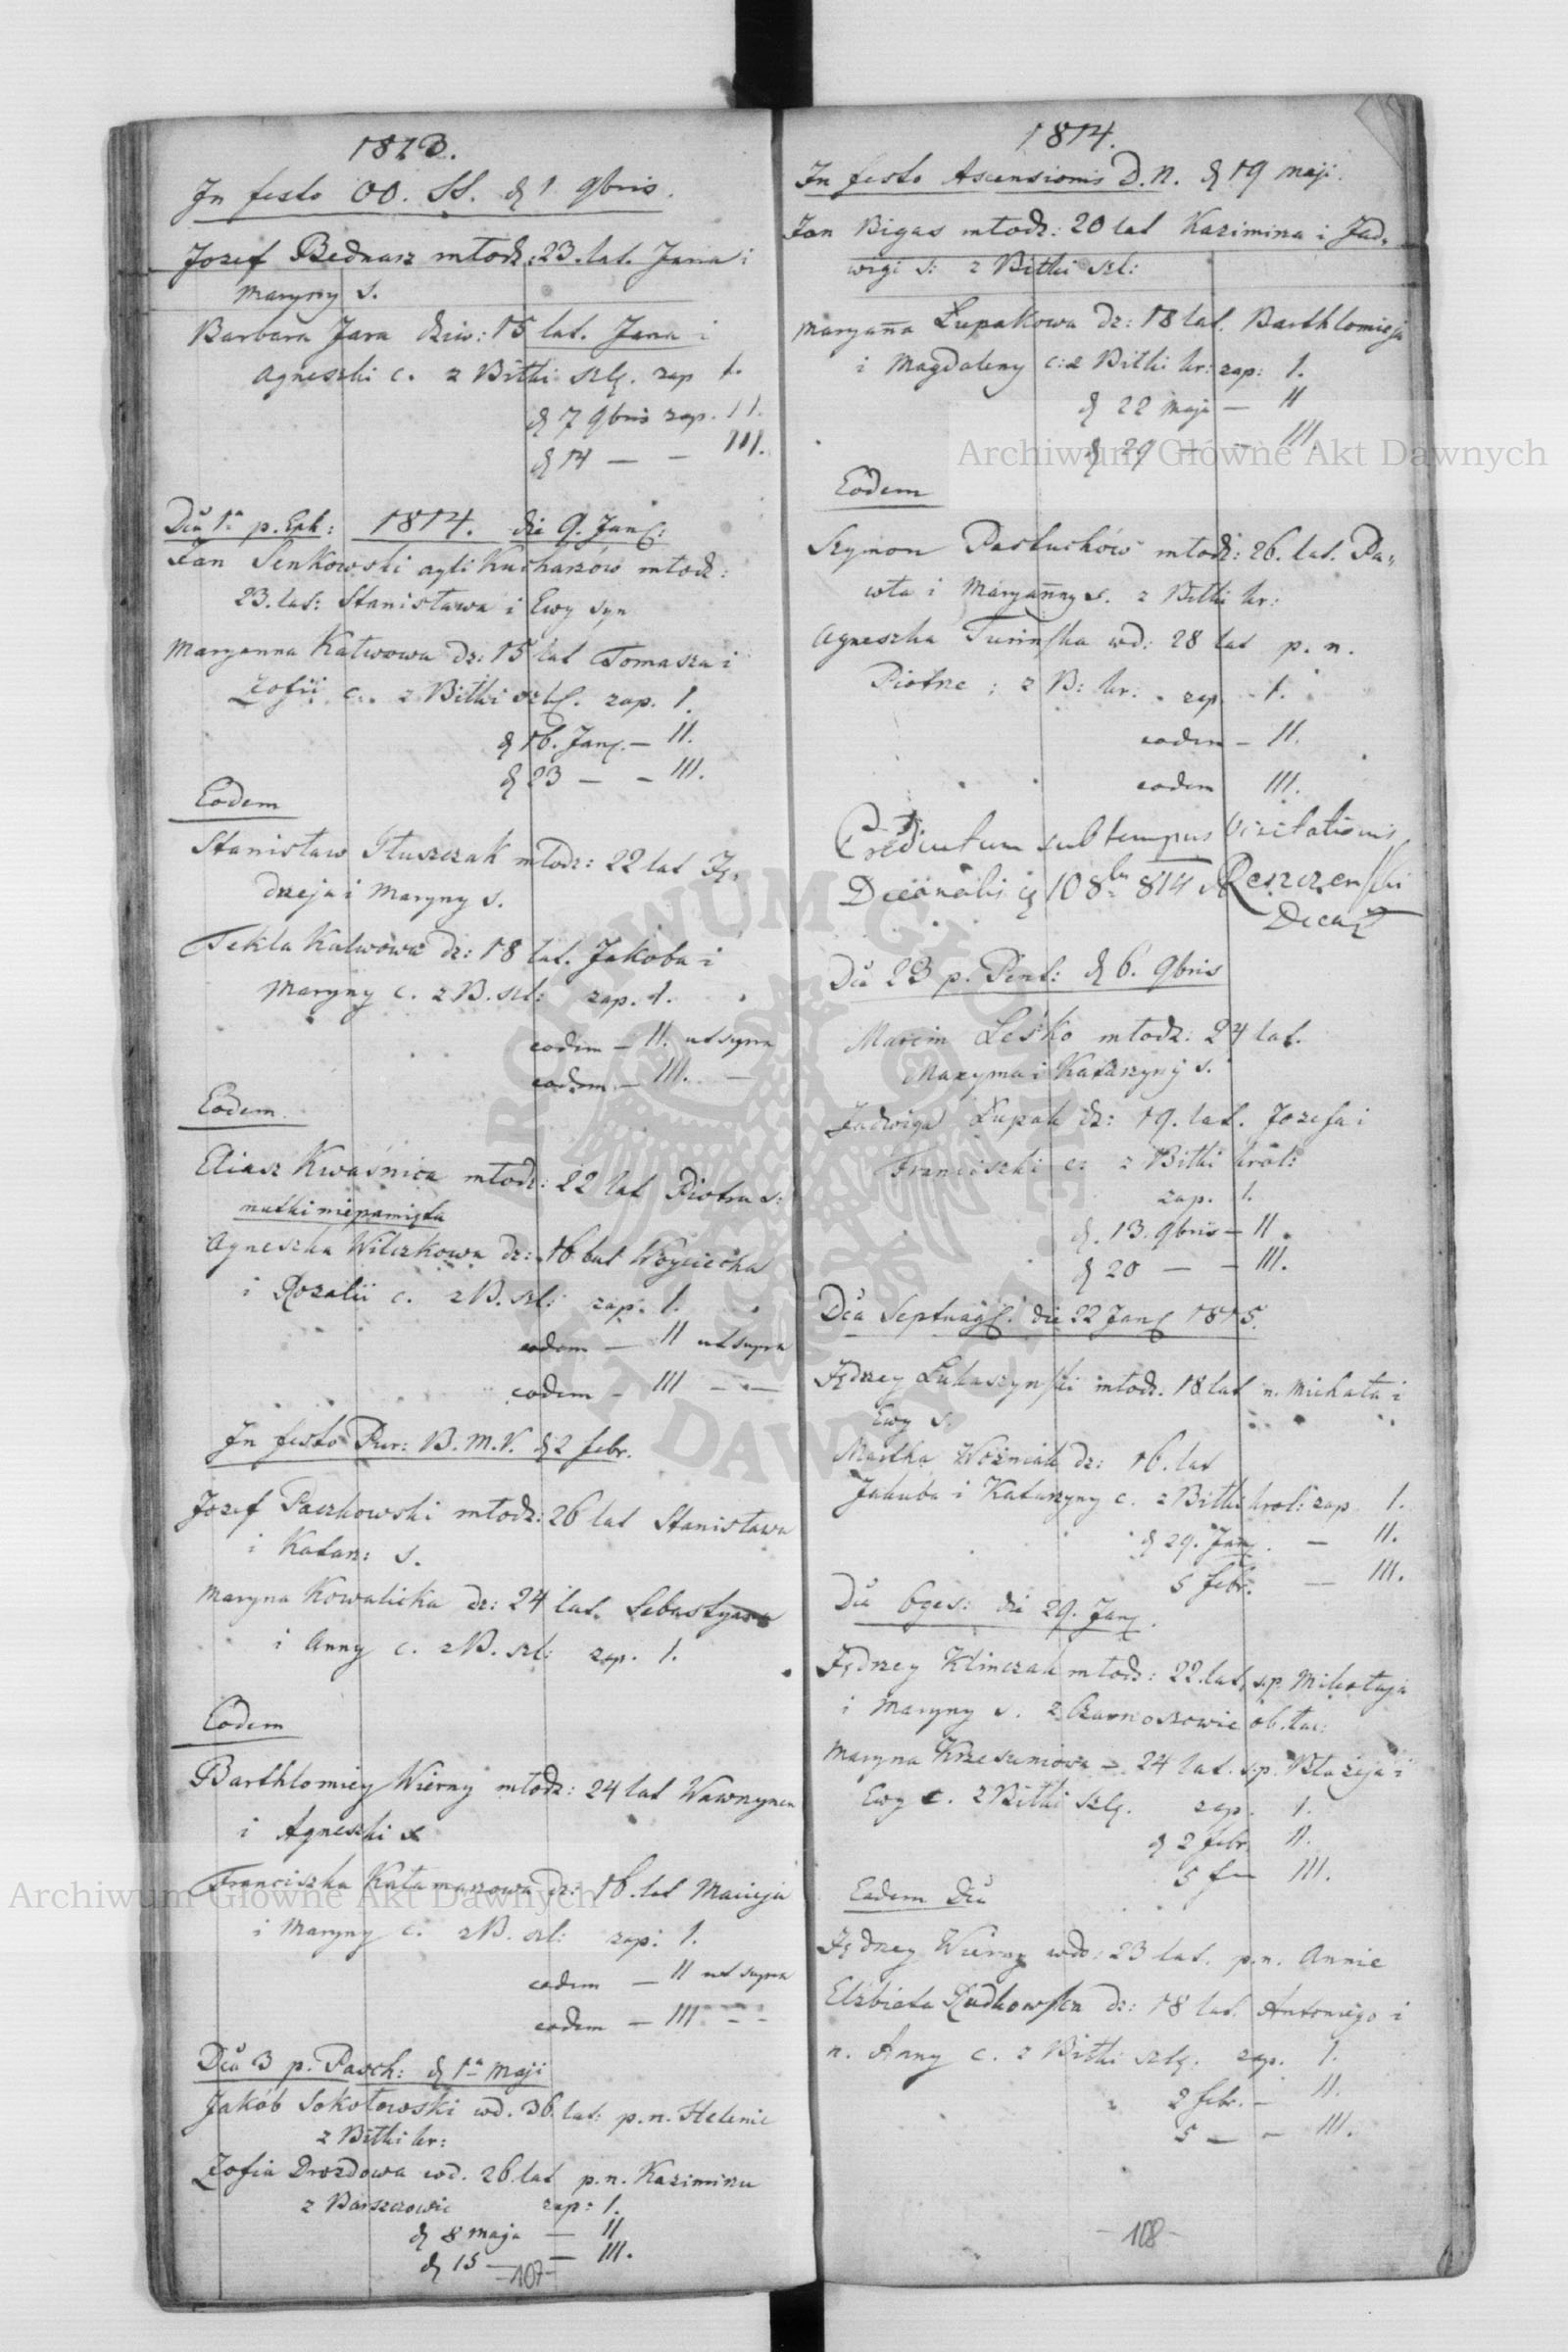 1813.
In festo OO. SS. d 1. 9bris.
Jozef Bednarz młodz: 23. lat. Jana i
Maryny s.
Barbara Jara dziw: 15 lat. Jana i
Agneszki c. z Bitki szlę. zap 1.
d 7 9bris zap. II.
d 14 — — III.
Dca 1a p. Eph: 1814. die 9. Jan:
Jan Senkowski czyli Kucharzów młodz:
23. lat: Stanisława i Ewy syn
Maryanna Kalwowa dz: 15 lat Tomasza i
Zofii c. z Bitki szl. zap. 1.
d 16. Jan. — II.
d 23 — — III.
Eodem
Stanisław Tłuszczak młodz: 22 lat Ję-
drzeja i Maryny s.
Tekla Kalwowa dz: 18 lat. Jakoba i
Maryny c. z B. szl: zap. 1.
eodem — II. ut supra
eodem — III. —
Eodem
Eliasz Kwaśnica młodz: 22 lat Piotra s:
matki niepamięta
Agneszka Wilczkowa dz: 16 lat Woyciecha
i Rozalii c. z B. szl: zap. 1.
eodem — II ut supra
eodem — III — —
In festo Pur: B. M. V. d 2 febr.
Jozef Paczkowski młodz: 26 lat Stanisława
i Katarz: s.
Maryna Kowalicka dz: 24 lat. Sebastyana
i Anny c. z B. szl: zap. 1.
Eodem
Barthlomiey Wierny młodz: 24 lat Wawrzynca
i Agneszki s
Franciszka Katamaszowa dz: 16. lat Macieja
i Maryny c. z B. szl: zap: 1.
eodem — II ut supra
eodem — III — —
Dca 3 p. Pasch: d 1a Maji
Jakób Sokołowski wd. 36. lat: p. n. Helenie
z Bitki kr:
Zofia Drozdowa wd. 26 lat p. n. Kazimirzu
z Barszczowic zap: 1.
d 8 maja — II
d 15 — — III.
-107-
1814.
In festo Ascensionis D. N. d 19 maji.
Jan Bigas młodz: 20 lat Kazimirza i Jad-
wigi s: z Bitki szl:
Maryanna Łupakowa dz: 18 lat. Barthlomieja
i Magdaleny c: z Bitki kr: zap: 1.
d 22 maja — II
d 29 — — III.
Eodem
Szymon Pastuchów młodz: 26. lat. Pa-
wła i Maryanny s. z Bitki kr:
Agneszka Turinska wd: 28 lat p. n.
Piotrze : z B: kr: zap. 1.
eodem — II.
eodem III.
sub tempus Visitationis
814
Decan
Dca 23 p. Pent: d 6. 9bris
Marcin Leśko młodz: 24 lat.
Maxyma i Katarzyny s.
Jadwiga Łupak dz: 19. lat. Jozefa i
Franciszki c: z Bitki król:
zap. 1.
d. 13. 9bris — II.
d 20 — — III.
Dca Septuag. die 22 Jan 1815.
Jędrzey Łukaszynski młodz. 18 lat n. Michała i
Ewy s.
Martha Wozniak dz: 16. lat
Jakuba i Katarzyny c. z Bitki krol: zap. 1.
d 29. Jan. — II.
5 febr. — III.
Dca 6ges: die 29. Jan.
Jędrzey Klinczak młodz: 22. lat, s.p. Mikołaja
i Maryny s. z
Maryna Krzesimowa — 24 lat. s.p. Błażeja i
Ewy c. z Bitki szlę. zap. 1.
d 2 febr. II.
5 — III.
Eadem Dca
Jędrzey Wierny wdo: 23 lat. p. n. Annie
Elżbieta Rudkowska dz: 18 lat. Antoniego i
n. Anny c. z Bitki szlę. zap. 1.
2 febr. — II.
5 — — III.
-108-
Archiwum Główne Akt Dawnych
Archiwum Główne Akt Dawnych
ARCHIWUM GŁÓWNE AKT DAWNYCH